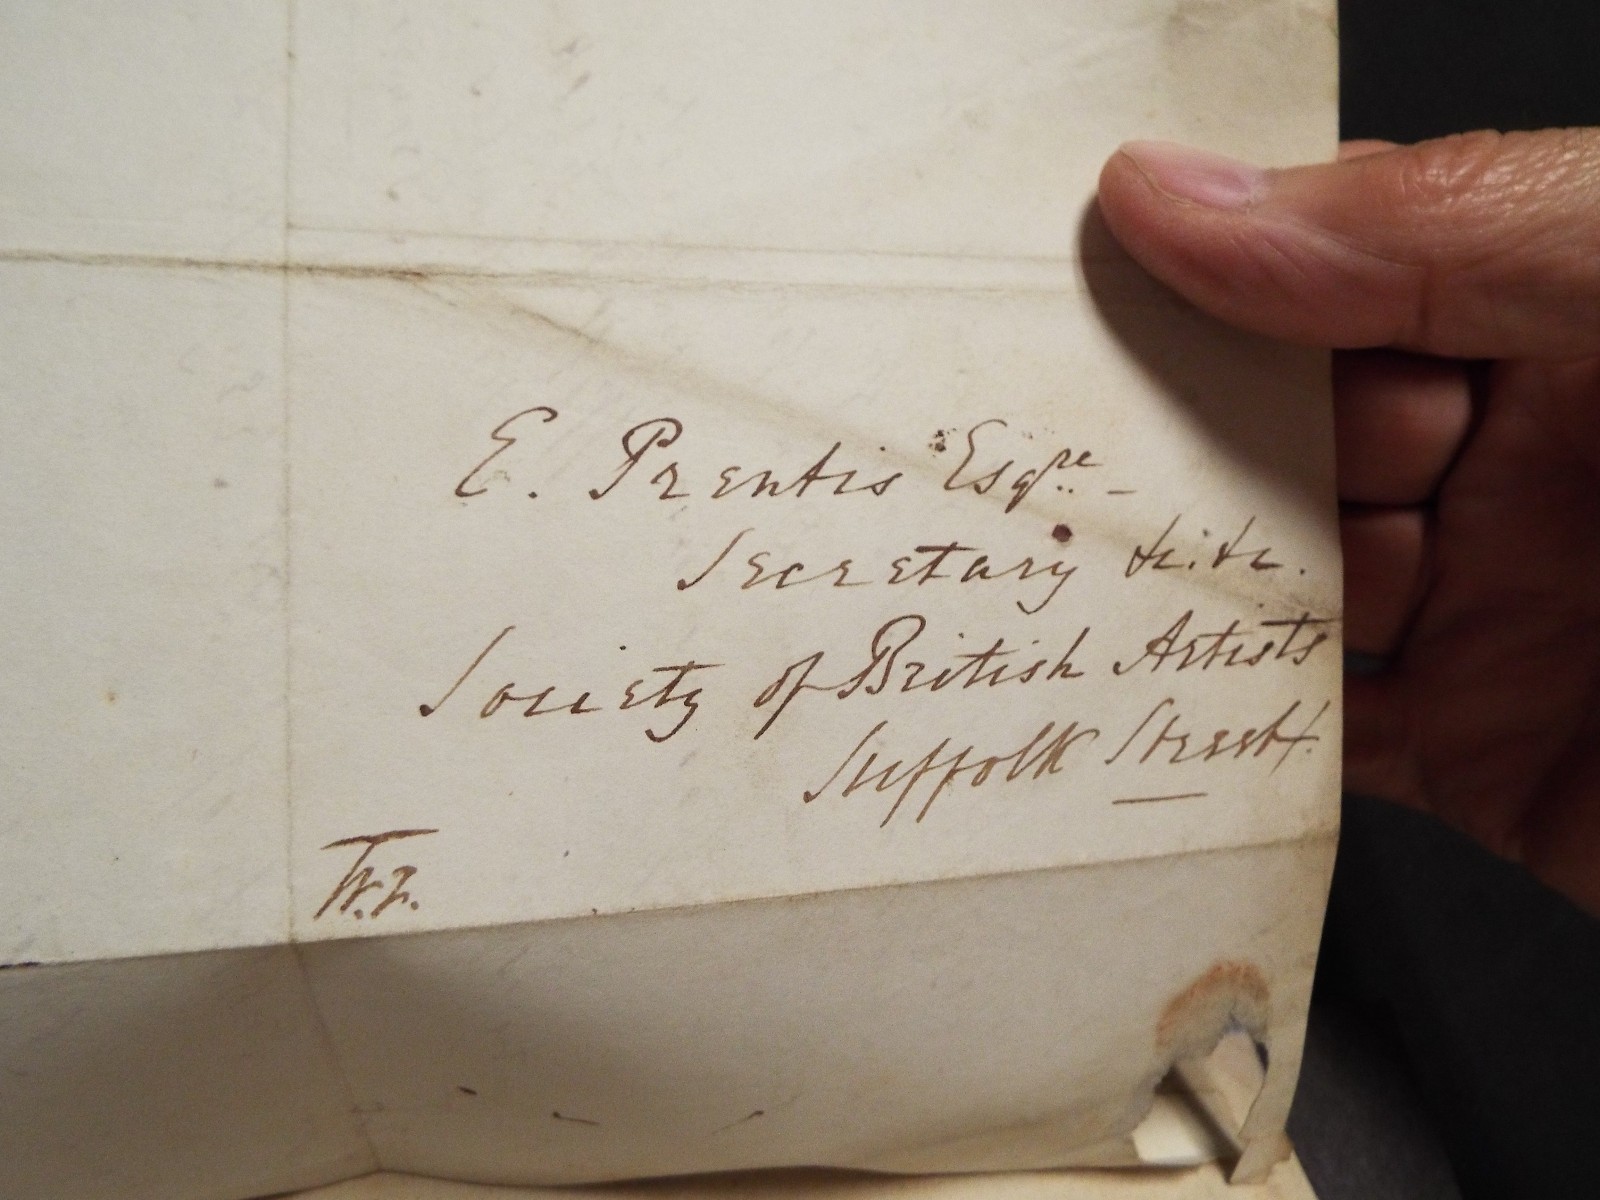 E. Prentis Esqre. –
Secretary &c. &c.
Society of British Artists
Suffolk Street.